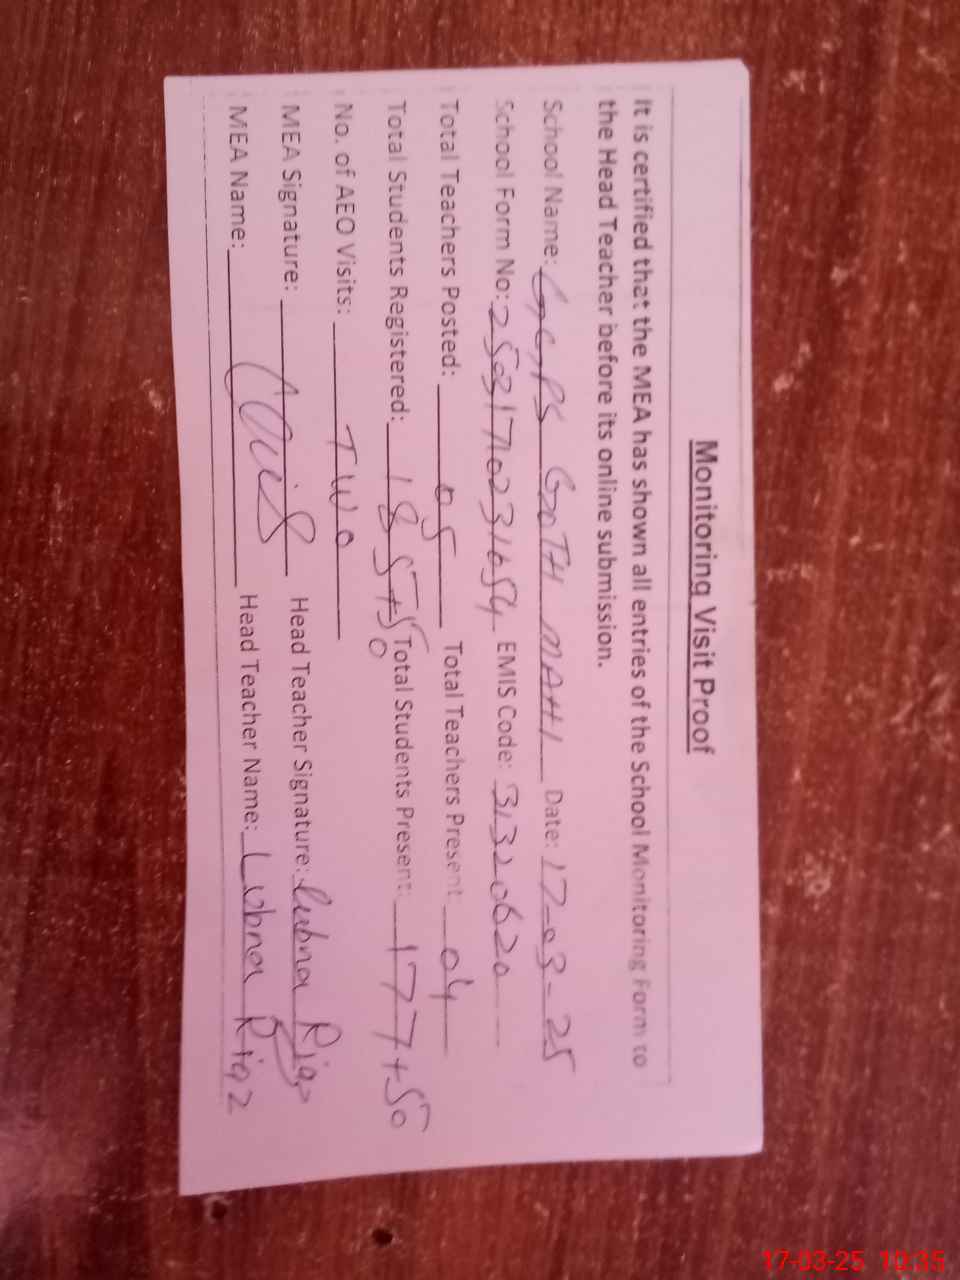 Monitoring Visit Proof
It is certified that the MEA has shown all entries of the School Monitoring Form to
the Head Teacher before its online submission.
School Name: GGPS GOTH MAHI Date: 17-03-25
School Form No: 25031710231654 EMIS Code: 31320620
Total Teachers Posted: 05 Total Teachers Present: 04
Total Students Registered: 185+50 Total Students Present: 177+50
No. of AEO Visits: TWO
MEA Signature: Head Teacher Signature: Lubna Riaz
MEA Name: Head Teacher Name: Lubna Riaz
17-03-25 10:35